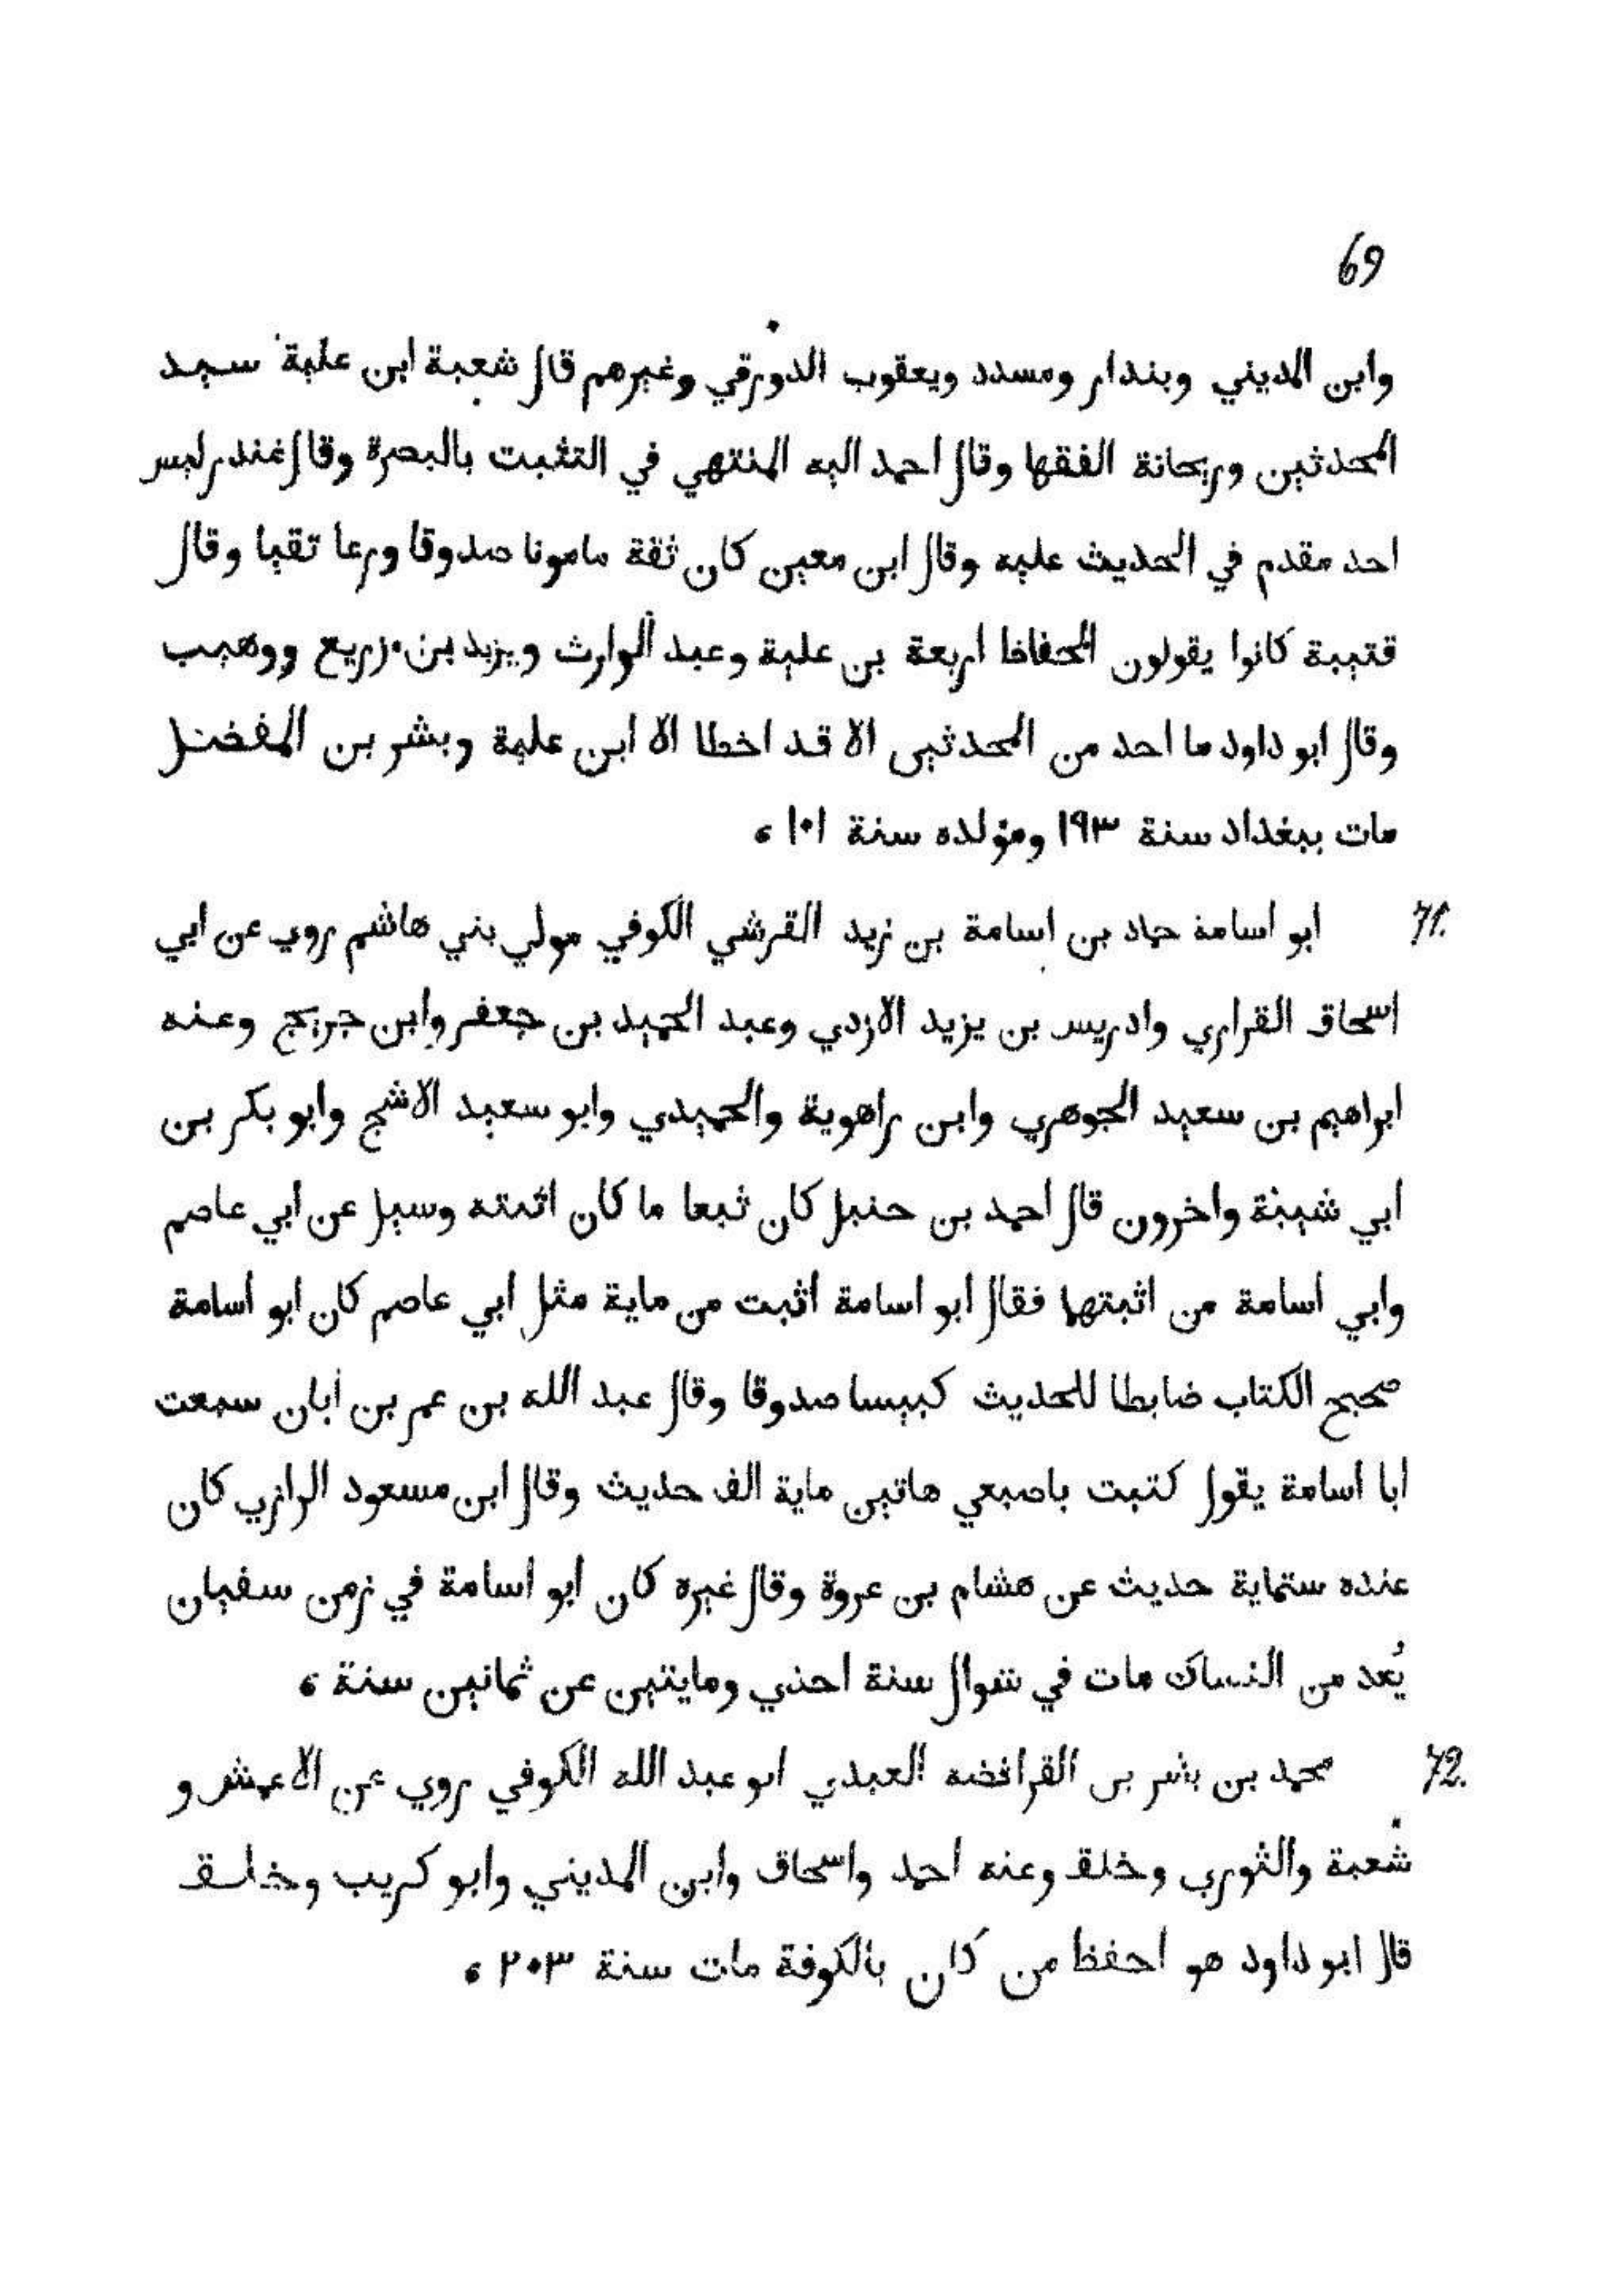 69
وابن المديني وبندار ومسدد ويعقوب الدورقي وغيرهم قال شعبة ابن علية سيد
المحدثين وريحانة الفقها وقال احمد اليه المنتهي في التثبت بالبصرة وقال غندر ليس
احد مقدم في الحديث عليه وقال ابن معين كان ثقة مامونا صدوقا ورعا تقيا وقال
قتيبة كانوا يقولون الحفاظ اربعة بن علية وعبد الوارث ويزيد بن زريع ووهيب
وقال ابو داود ما احد من المحدثين الا قد اخطا الا ابن علية وبشر بن المفضل
مات ببغداد سنة ١٩٣ ومولده سنة ١٠١ ،
71. ابو اسامة حماد بن اسامة بن زيد القرشي الكوفي مولي بني هاشم روي عن ابي
اسحاق القراري وادريس بن يزيد الازدي وعبد الحميد بن جعفر وابن جريج وعنه
ابراهيم بن سعيد الجوهري وابن راهوية والحميدي وابو سعيد الاشج وابو بكر بن
ابي شيبة واخرون قال احمد بن حنبل كان ثبعا ما كان اثبته وسيل عن ابي عاصم
وابي اسامة من اثبتهما فقال ابو اسامة اثبت من ماية مثل ابي عاصم كان ابو اسامة
صحيح الكتاب ضابطا للحديث كبيسا صدوقا وقال عبد الله بن عمر بن ابان سمعت
ابا اسامة يقول كتبت باصبعي هاتين ماية الف حديث وقال ابن مسعود الرازي كان
عنده ستماية حديث عن هشام بن عروة وقال غيره كان ابو اسامة في زمن سفيان
يُعد من النساك مات في شوال سنة احذي ومايتين عن ثمانين سنة ،
72. محمد بن بشر بن القرافضه العبدي ابو عبد الله الكوفي روي عن الاعمش و
شعبة والثوري وخلق وعنه احمد واسحاق وابن المديني وابو كريب وخلق
قال ابو داود هو احفظ من كان بالكوفة مات سنة ٢٠٣ ،